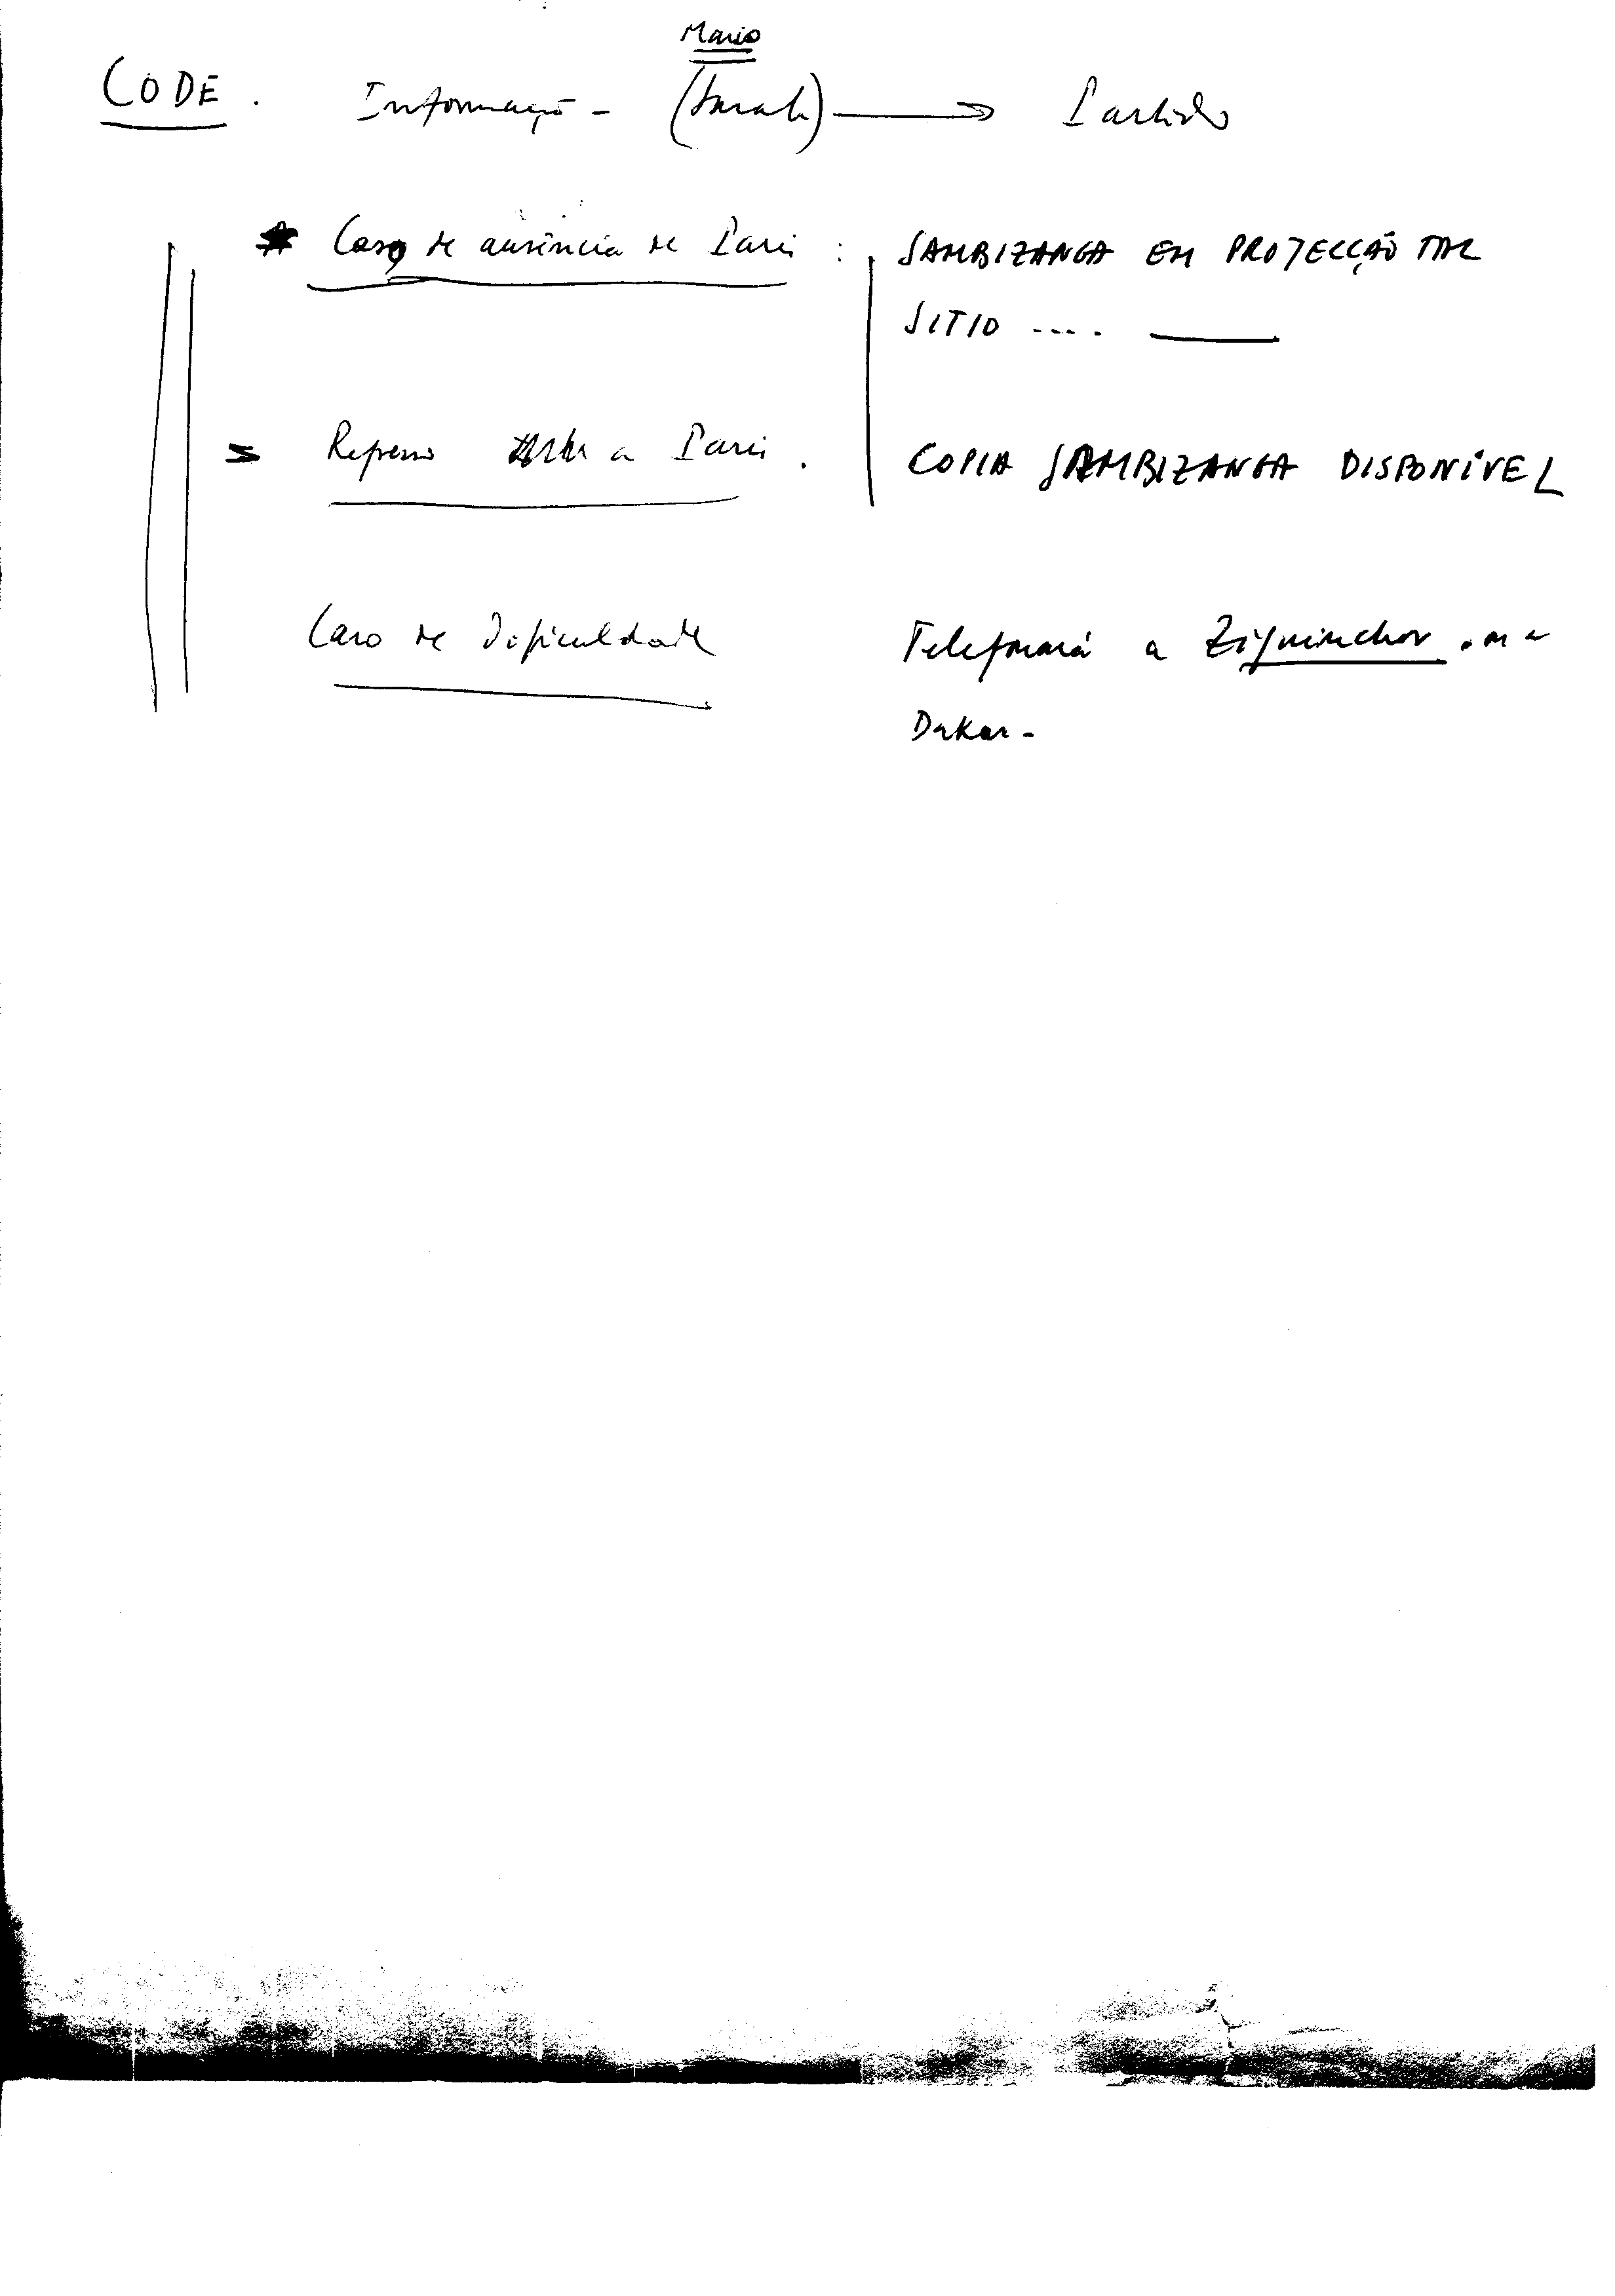 Mario
CODE. Informação - (Sarah) → Partido
* Caso de ausência de Paris : SAMBIZANGA EM PROJECÇÃO TAL
SITIO .... ____
= Regresso a Paris. COPIA SAMBIZANGA DISPONÍVEL
Caso de Dificuldade Telefonará a Ziguinchor
Dakar -